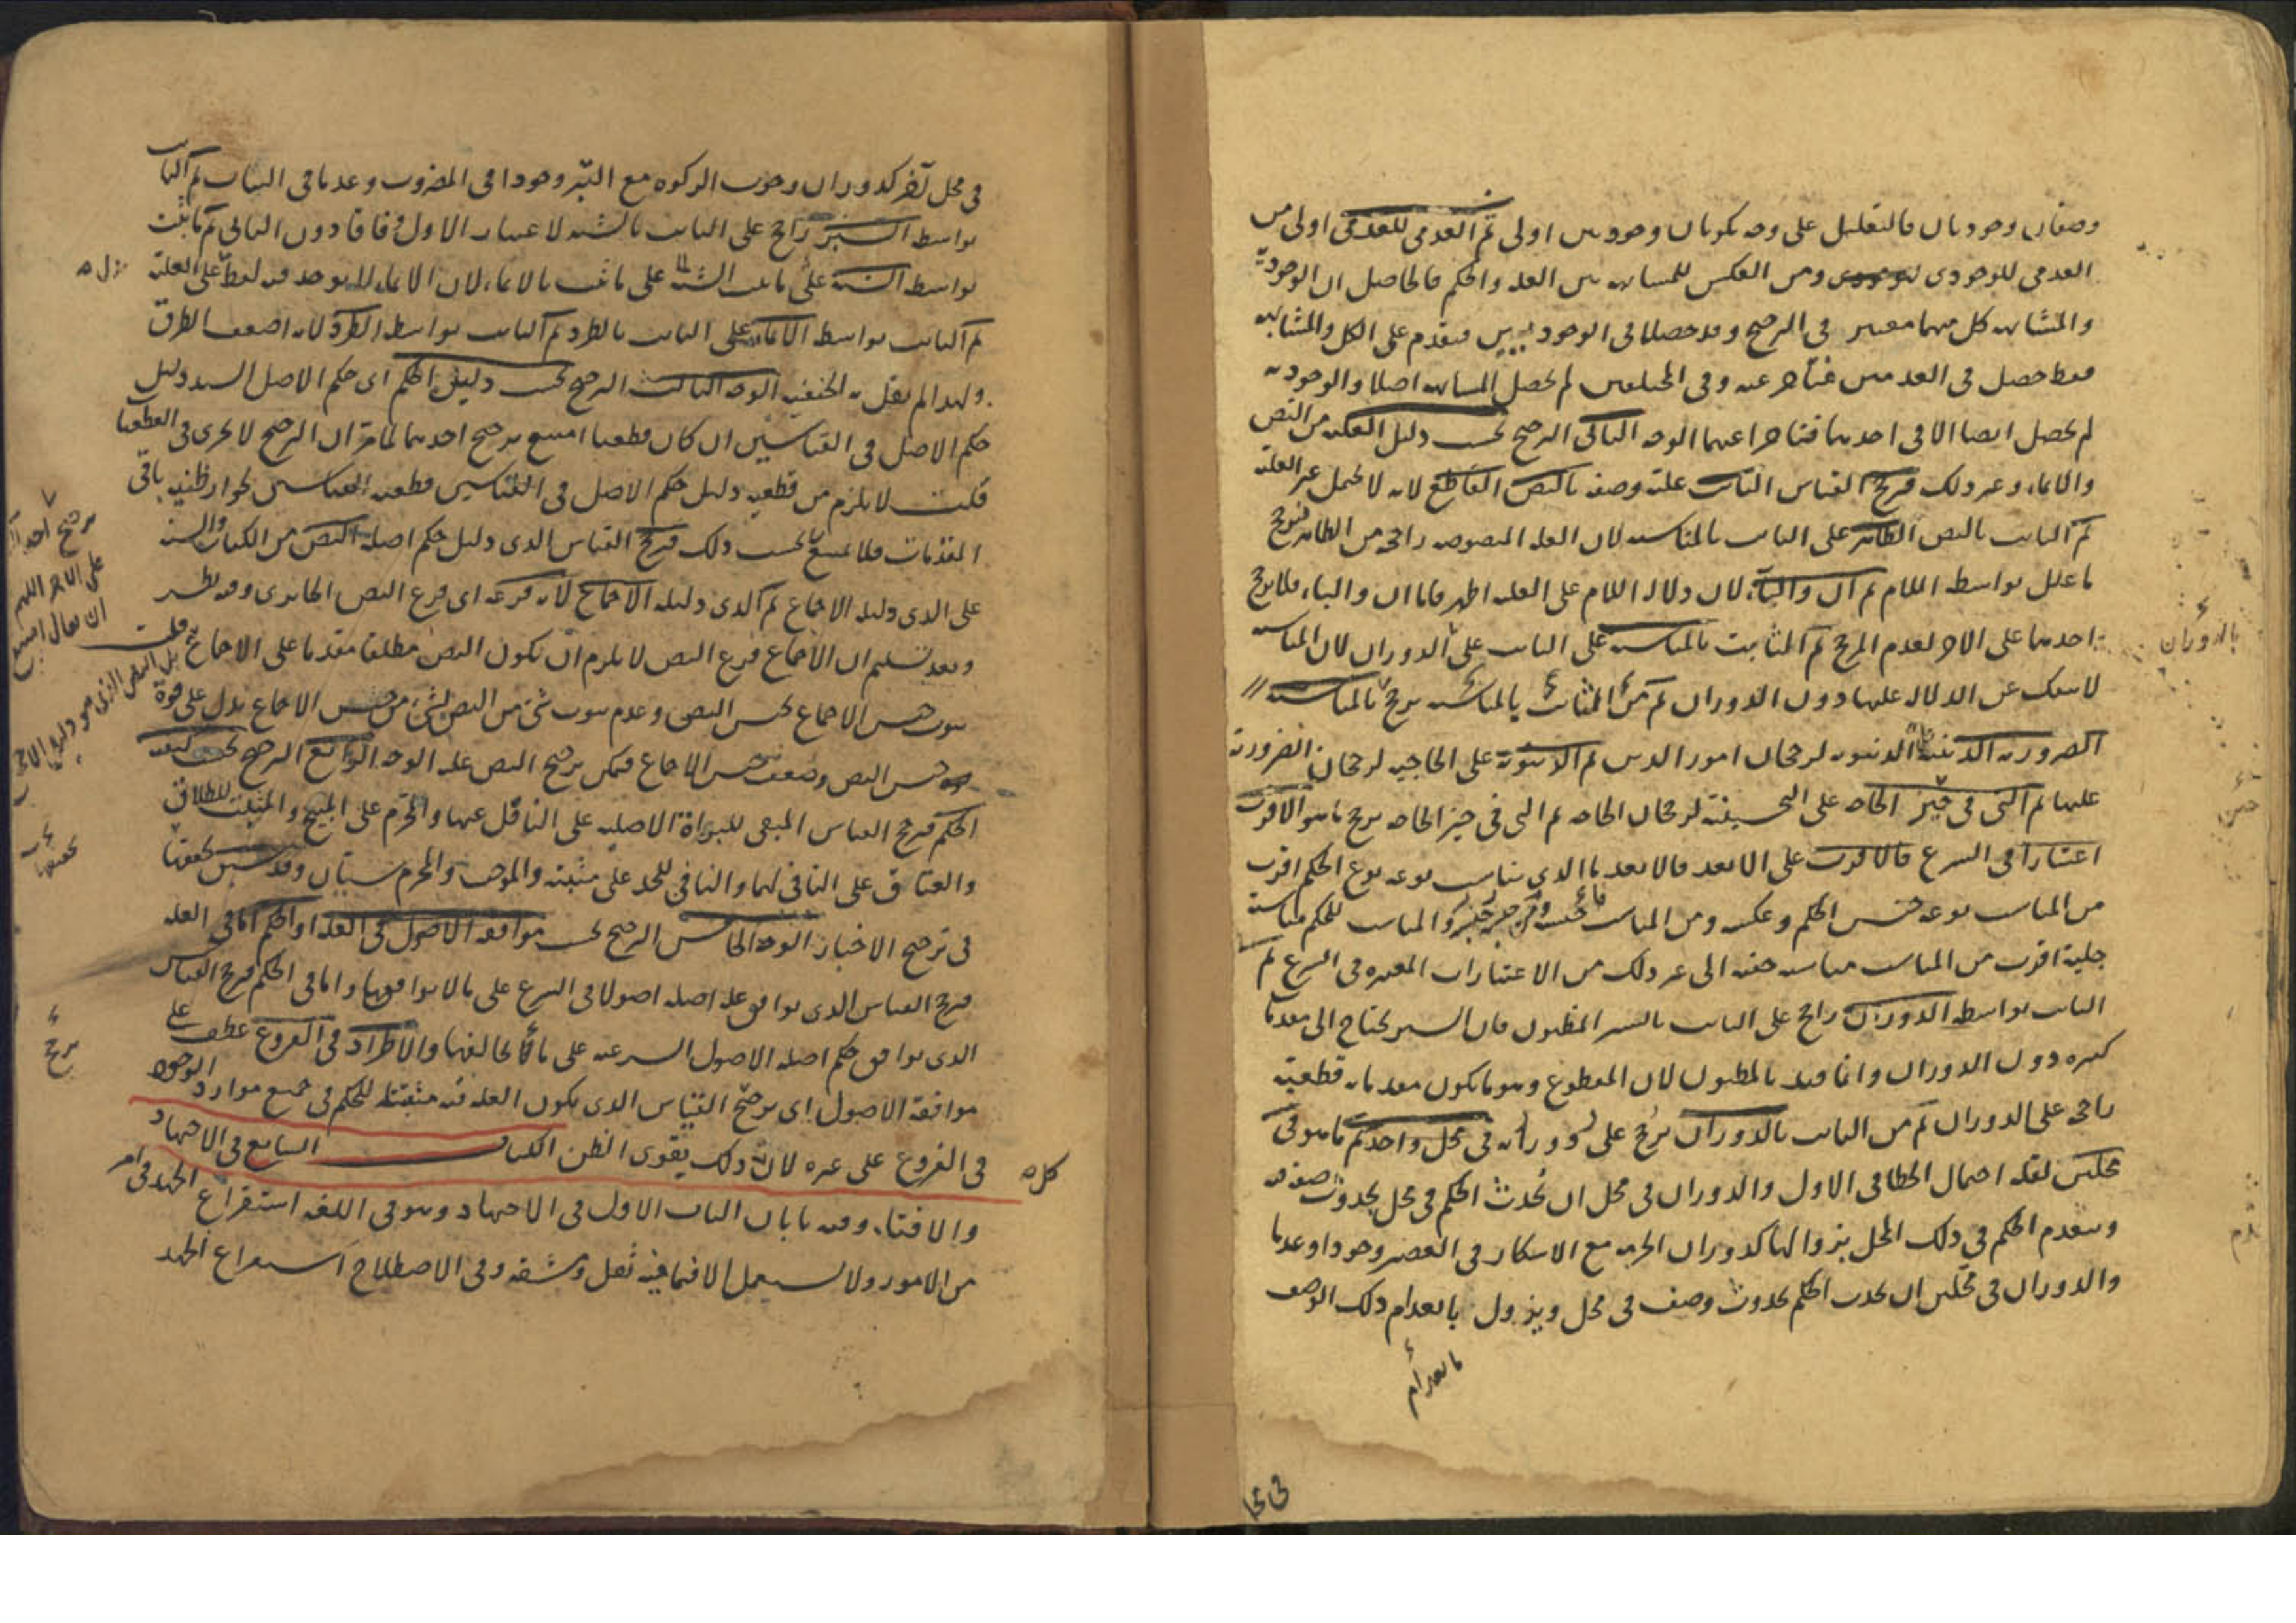 وصفان وجوديان فالتعليل على وجه يكونان وجوديين اولى ثم العدمي للعدمي اولى من
العدمي للوجودي ومن العكس للمشابهة بين العلة والحكم فالحاصل ان الوجودية
والمشابهة كل منهما معتبر في الترجيح وقد حصلا في الوجوديين فيقدم على الكل والمشابهة
فقط حصل في العدميين فتأخر عنه وفي المختلفين لم يحصل المشابهة اصلا والوجودية
لم يحصل ايضا الا في احدهما فتأخرا عنهما الوجه الثاني الترجيح بحسب دليل العلية من النص
والايماء وغير ذلك فيرجح القياس الثابت علية وصفه بالنص القاطع لانه لا يحتمل غير العلية
ثم الثابت بالنص الظاهر على الثابت بالمناسبة لان العلة المنصوصة راجحة من الظاهر فيرجح
ما علل بواسطة اللام ثم ان والباء لان دلالة اللام على العلية اظهر فاما ان والباء فلا يرجح
احدهما على الاخر لعدم المرجح ثم الثابت بالمناسبة على الثابت على الدوران لان المناسبة
لا ينفك عن الدلالة عليها دون الدوران ثم من الثابت بالمناسبة يرجح بالمناسبة
الضرورية الدينية الدنيوية لرجحان امور الدين ثم الدنيوية على الحاجية لرجحان الضرورية
عليها ثم التي في حيز الحاجة على التحسينية لرجحان الحاجة ثم التي في حيز الحاجة يرجح ما هو الاقرب
اعتبارا في الشرع فالاقرب على الابعد فالابعد فالذي يناسب نوعه نوع الحكم اقرب
من المناسب نوعه جنس الحكم وعكسه ومن المناسب جنسه والمناسب للحكم مناسبة
جلية اقرب من المناسب مناسبة خفية الى غير ذلك من الاعتبارات المعتبرة في الشرع ثم
الثابت بواسطة الدوران راجح على الثابت بالسبر المظنون فان السبر يحتاج الى مقدمات
كثيرة دون الدوران وانما قيد بالمظنون لان المقطوع وهو ما يكون مقدماته قطعية
راجح على الدوران ثم من الثابت بالدوران يرجح على دورانه في محل واحد ثم ما هو في
محلين لقلة احتمال الخطا في الاول والدوران في محل ان يحدث الحكم في محل بحدوث صفة
وينعدم الحكم في ذلك المحل بزوالها كدوران الحرمة مع الاسكار في العصير وجودا وعدما
والدوران في محلين ان يحدث الحكم بحدوث وصف في محل ويزول بانعدام ذلك الوصف
بانعدام
في محل
بالدوران
جنس
في محل آخر كدوران وجوب الزكوة مع التبر وجودا في المضروب وعدما في الثياب ثم الثابت
بواسطة السبر راجح على الثابت بالشبه لاعتبار الاول وفاقا دون الثاني ثم ما ثبت
بواسطة الشبه على ما ثبت بالايماء لان الايماء لا يوجد فيه لفظ على العلية
ثم الثابت بواسطة الايماء على الثابت بالطرد ثم الثابت بواسطة الطرد لانه اضعف الطرق
ولهذا لم يقل به الحنفية الوجه الثالث الترجيح بحسب دليل الحكم اى حكم الاصل السند دليل
حكم الاصل في القياسين ان كان قطعيا امتنع ترجيح احدهما لما مر ان الترجيح لا يجرى في القطعيات
قلت لا يلزم من قطعية دليل حكم الاصل في القياسين قطعية القياسين لجواز ظنية باقي
المقدمات فلا يمتنع بحسب ذلك فيرجح القياس الذى دليل حكم اصله النص من الكتاب والسنة
على الذى دليله الاجماع ثم الذى دليله الاجماع لانه فرعه اى فرع النص الحابرى وفيه نظر
وبعد تسليم ان الاجماع فرع النص لا يلزم ان يكون النص مطلقا مقدما على الاجماع
ثبوت جنس الاجماع بجنس النص وعدم ثبوت شئ من النص بشئ من جنس الاجماع يدل على قوة
جنس النص وضعف جنس الاجماع فيمكن ترجيح النص عليه الوجه الرابع الترجيح بحسب كيفية
الحكم فيرجح القياس المبقى للبراءة الاصلية على الناقل عنها والمحرم على المبيح والمثبت للطلاق
والعتاق على النافى لهما والنافى للحد على مثبته والموجب والمحرم سيان وقد سبق تحقيقها
في ترجيح الاخبار الوجه الخامس الترجيح بحسب موافقة الاصول في العلة او الحكم اما في العلة
فيرجح القياس الذى يوافق علة اصله اصولا في الشرع على ما لا يوافقها واما في الحكم فيرجح القياس
الذى يوافق حكم اصله الاصول الشرعية على ما يخالفها والاطراد في الفروع عطف على
موافقة الاصول اى يرجح القياس الذى يكون العلة فيه مثبتة للحكم في جميع موارد الوجود
في الفروع على غيره لان ذلك يقوى الظن الكتاب السابع في الاجتهاد
والافتاء وفيه بابان الباب الاول في الاجتهاد وهو في اللغة استفراغ الجهد في امر
من الامور ولا يستعمل الا فيما فيه ثقل ومشقة وفي الاصطلاح استفراغ الجهد
على الاخر اللهم
بل النص الذى هو دليل الاجماع
يرجح